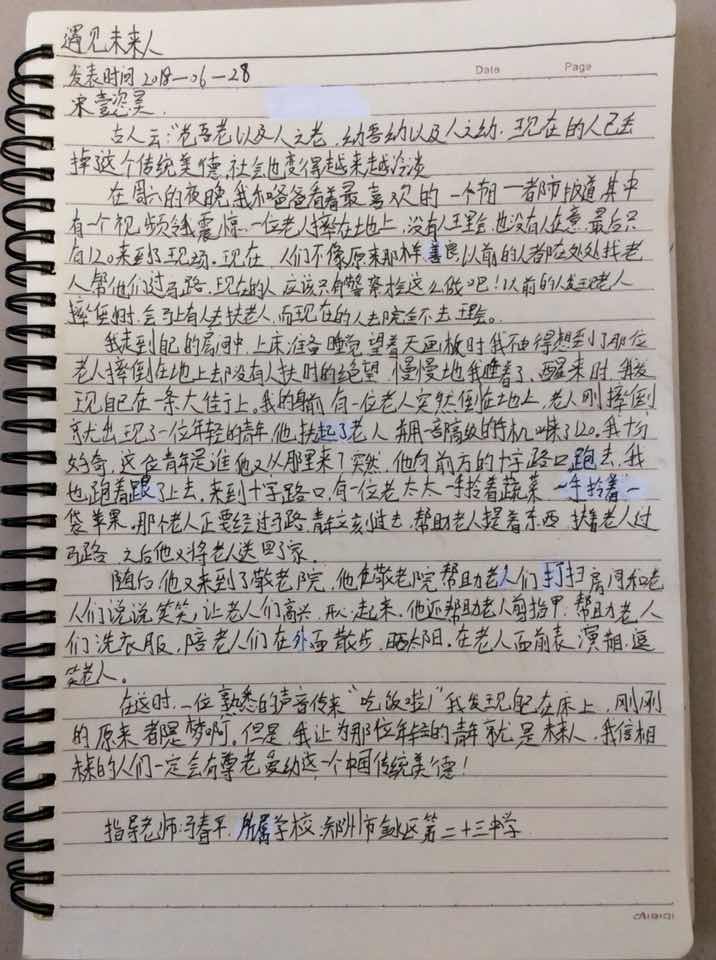 遇见未来人
Date Page
发表时间 2018-06-28
宋壹恣昊
古人云:“老吾老以及人之老,幼吾幼以及人之幼.现在的人已丢
掉这个传统美德,社会也变得越来越冷淡
在周六的夜晚,我和爸爸看着最喜欢的一个节目——都市报道,其中
有一个视频令我震惊.一位老人摔在地上,没有人理会,也没有人在意.最后只
有120来到了现场.现在,人们不像原来那样善良以前的人都在处处找老
人帮他们过马路,现在的人应该只有警察捡这么做吧!以前的人发现老人
摔倒时,会马上有人去扶老人,而现在的人去院全不去理会。
我来到自己的房间中,上床准备睡觉望着天画板时我不由得想到了那位
老人摔倒在地上却没有人扶时的绝望,慢慢地我睡着了,醒来时,我发
现自己在一条大街上。我的身前有一位老人突然倒在地上,老人刚摔倒
就出现了一位年轻的青年,他扶起了老人并用一部高级的手机叫来了120。我十分
好奇,这位青年是谁他又从那里来?突然,他向前方的十字路口跑去,我
也跑着跟了上去,来到十字路口,有一位老太太一手拎着蔬菜一手拎着一
袋苹果。那个老人正要经过马路,青年立刻过去,帮助老人提着东西,扶着老人过
马路 之后他又将老人送回了家.
随后他又来到了敬老院,他在敬老院帮助老人们打扫房间和老
人们说说笑笑,让老人们高兴,开心起来.他还帮助老人剪指甲.帮助老人
们洗衣服,陪老人们在外面散步,晒太阳,在老人面前表演相.逗
笑老人。
在这时,一位熟悉的声音传来“吃饭啦!”我发现自己在床上,刚刚
的原来都是梦啊。但是,我认为那位年轻的青年就是未来人,我信相
未来的人们一定会有尊老爱幼这一个中国传统美德!
指导老师:马春平 所属学校:郑州市金水区第二十三中学